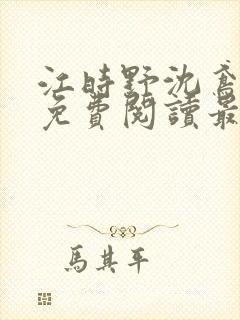 江時野沈鳶
免費閱讀最
馬其平